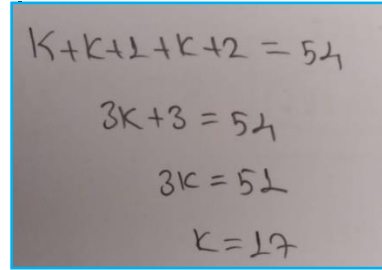 K+K+1+K+2 = 54
3K+3 = 54
3K = 51
K = 17